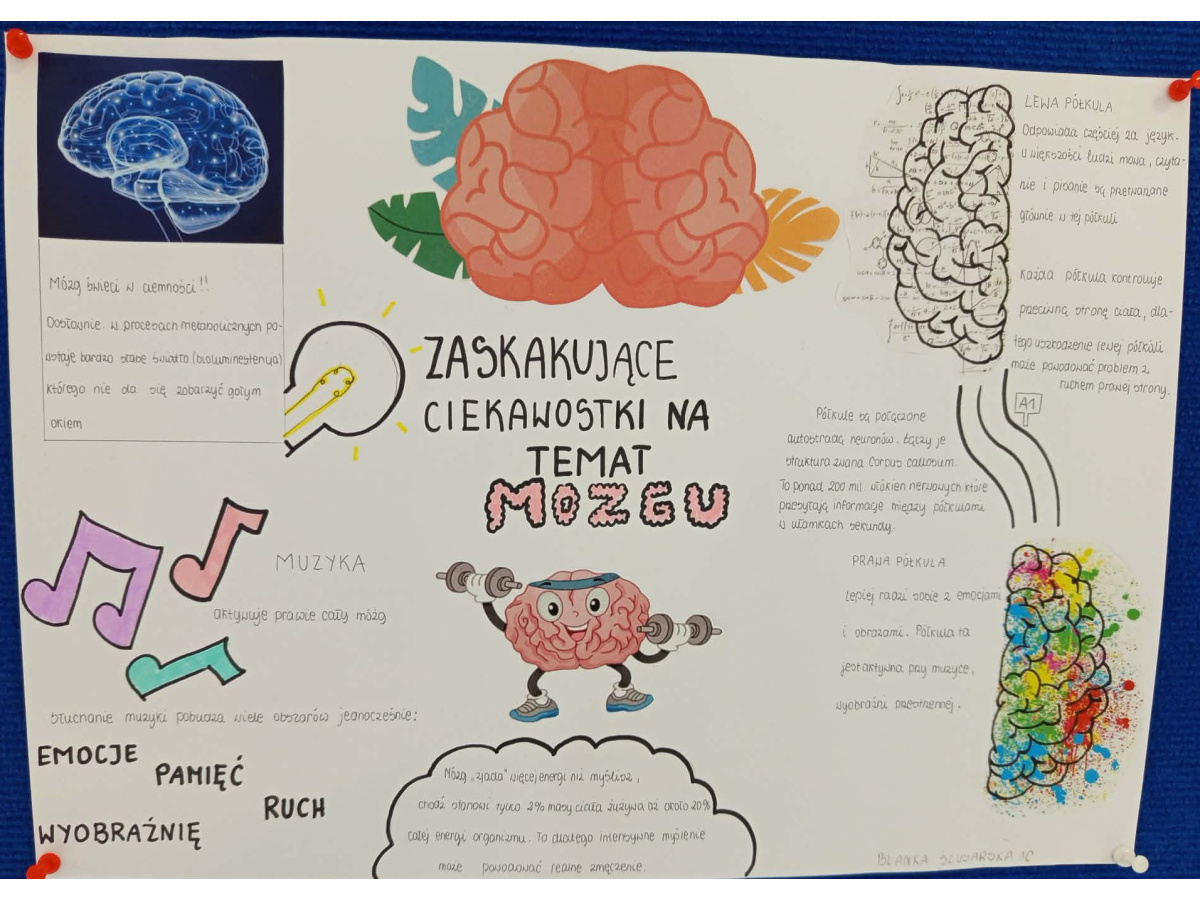 Mózg świeci w ciemności!!
Dosłownie. w procesach metabolicznych po-
wstaje bardzo słabe światło (bioluminestencja)
którego nie da się zobaczyć gołym
okiem
ZASKAKUJĄCE
CIEKAWOSTKI NA
TEMAT
MOZGU
LEWA PÓŁKULA
Odpowiada częściej za język.
U większości ludzi mowa, czyta-
nie i pisanie są przetwarzane
głównie w tej półkuli
Każda półkula kontroluje
przeciwną stronę ciała, dla-
tego uszkodzenie lewej półkuli
może powodować problem z
ruchem prawej strony.
A1
Półkule są połączone
autostradą neuronów. Łączy je
struktura zwana Corpus callosum.
To ponad 200 mil. włókien nerwowych które
przesyłają informacje między półkulami
w ułamkach sekundy.
PRAWA PÓŁKULA
Lepiej radzi sobie z emocjami
i obrazami. Półkula ta
jest aktywna przy muzyce,
wyobraźni przestrzennej.
MUZYKA
aktywuje prawie cały mózg
Słuchanie muzyki pobudza wiele obszarów jednocześnie:
EMOCJE
PAMIĘĆ
RUCH
WYOBRAŹNIĘ
Mózg „zjada" więcej energi niż myślisz,
chodź stanowi tylko 2% masy ciała zużywa aż około 20%
całej energi organizmu. To dlatego intensywne myślenie
może powodować realne zmęczenie.
BLANKA ŚLUSARSKA 1C